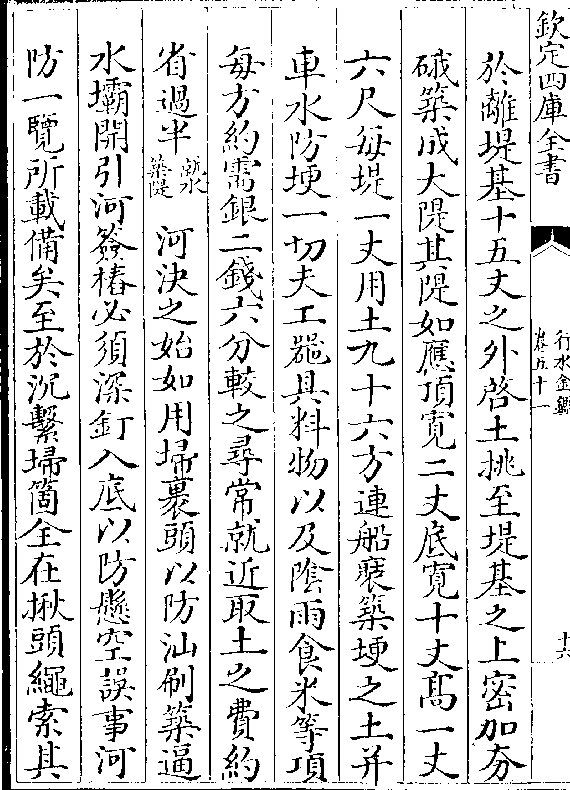 欽定四庫全書
行水金鑑
卷五十一
十六
於離堤基十五丈之外啓土挑至堤基之上密加夯
硪築成大隄其隄如應頂寛二丈底寛十丈髙一丈
六尺每堤一丈用土九十六方連船裹築埂之土并
車水防埂一切夫工器具料物以及陰雨食米等項
每方約需銀二錢六分較之尋常就近取土之費約
省過半
漸水
築隄
河決之始如用埽裹頭以防汕刷築逼
水壩開引河簽樁必須深釘入底以防懸空誤事河
防一覽所載備矣至於沉繫埽箇全在揪頭繩索其